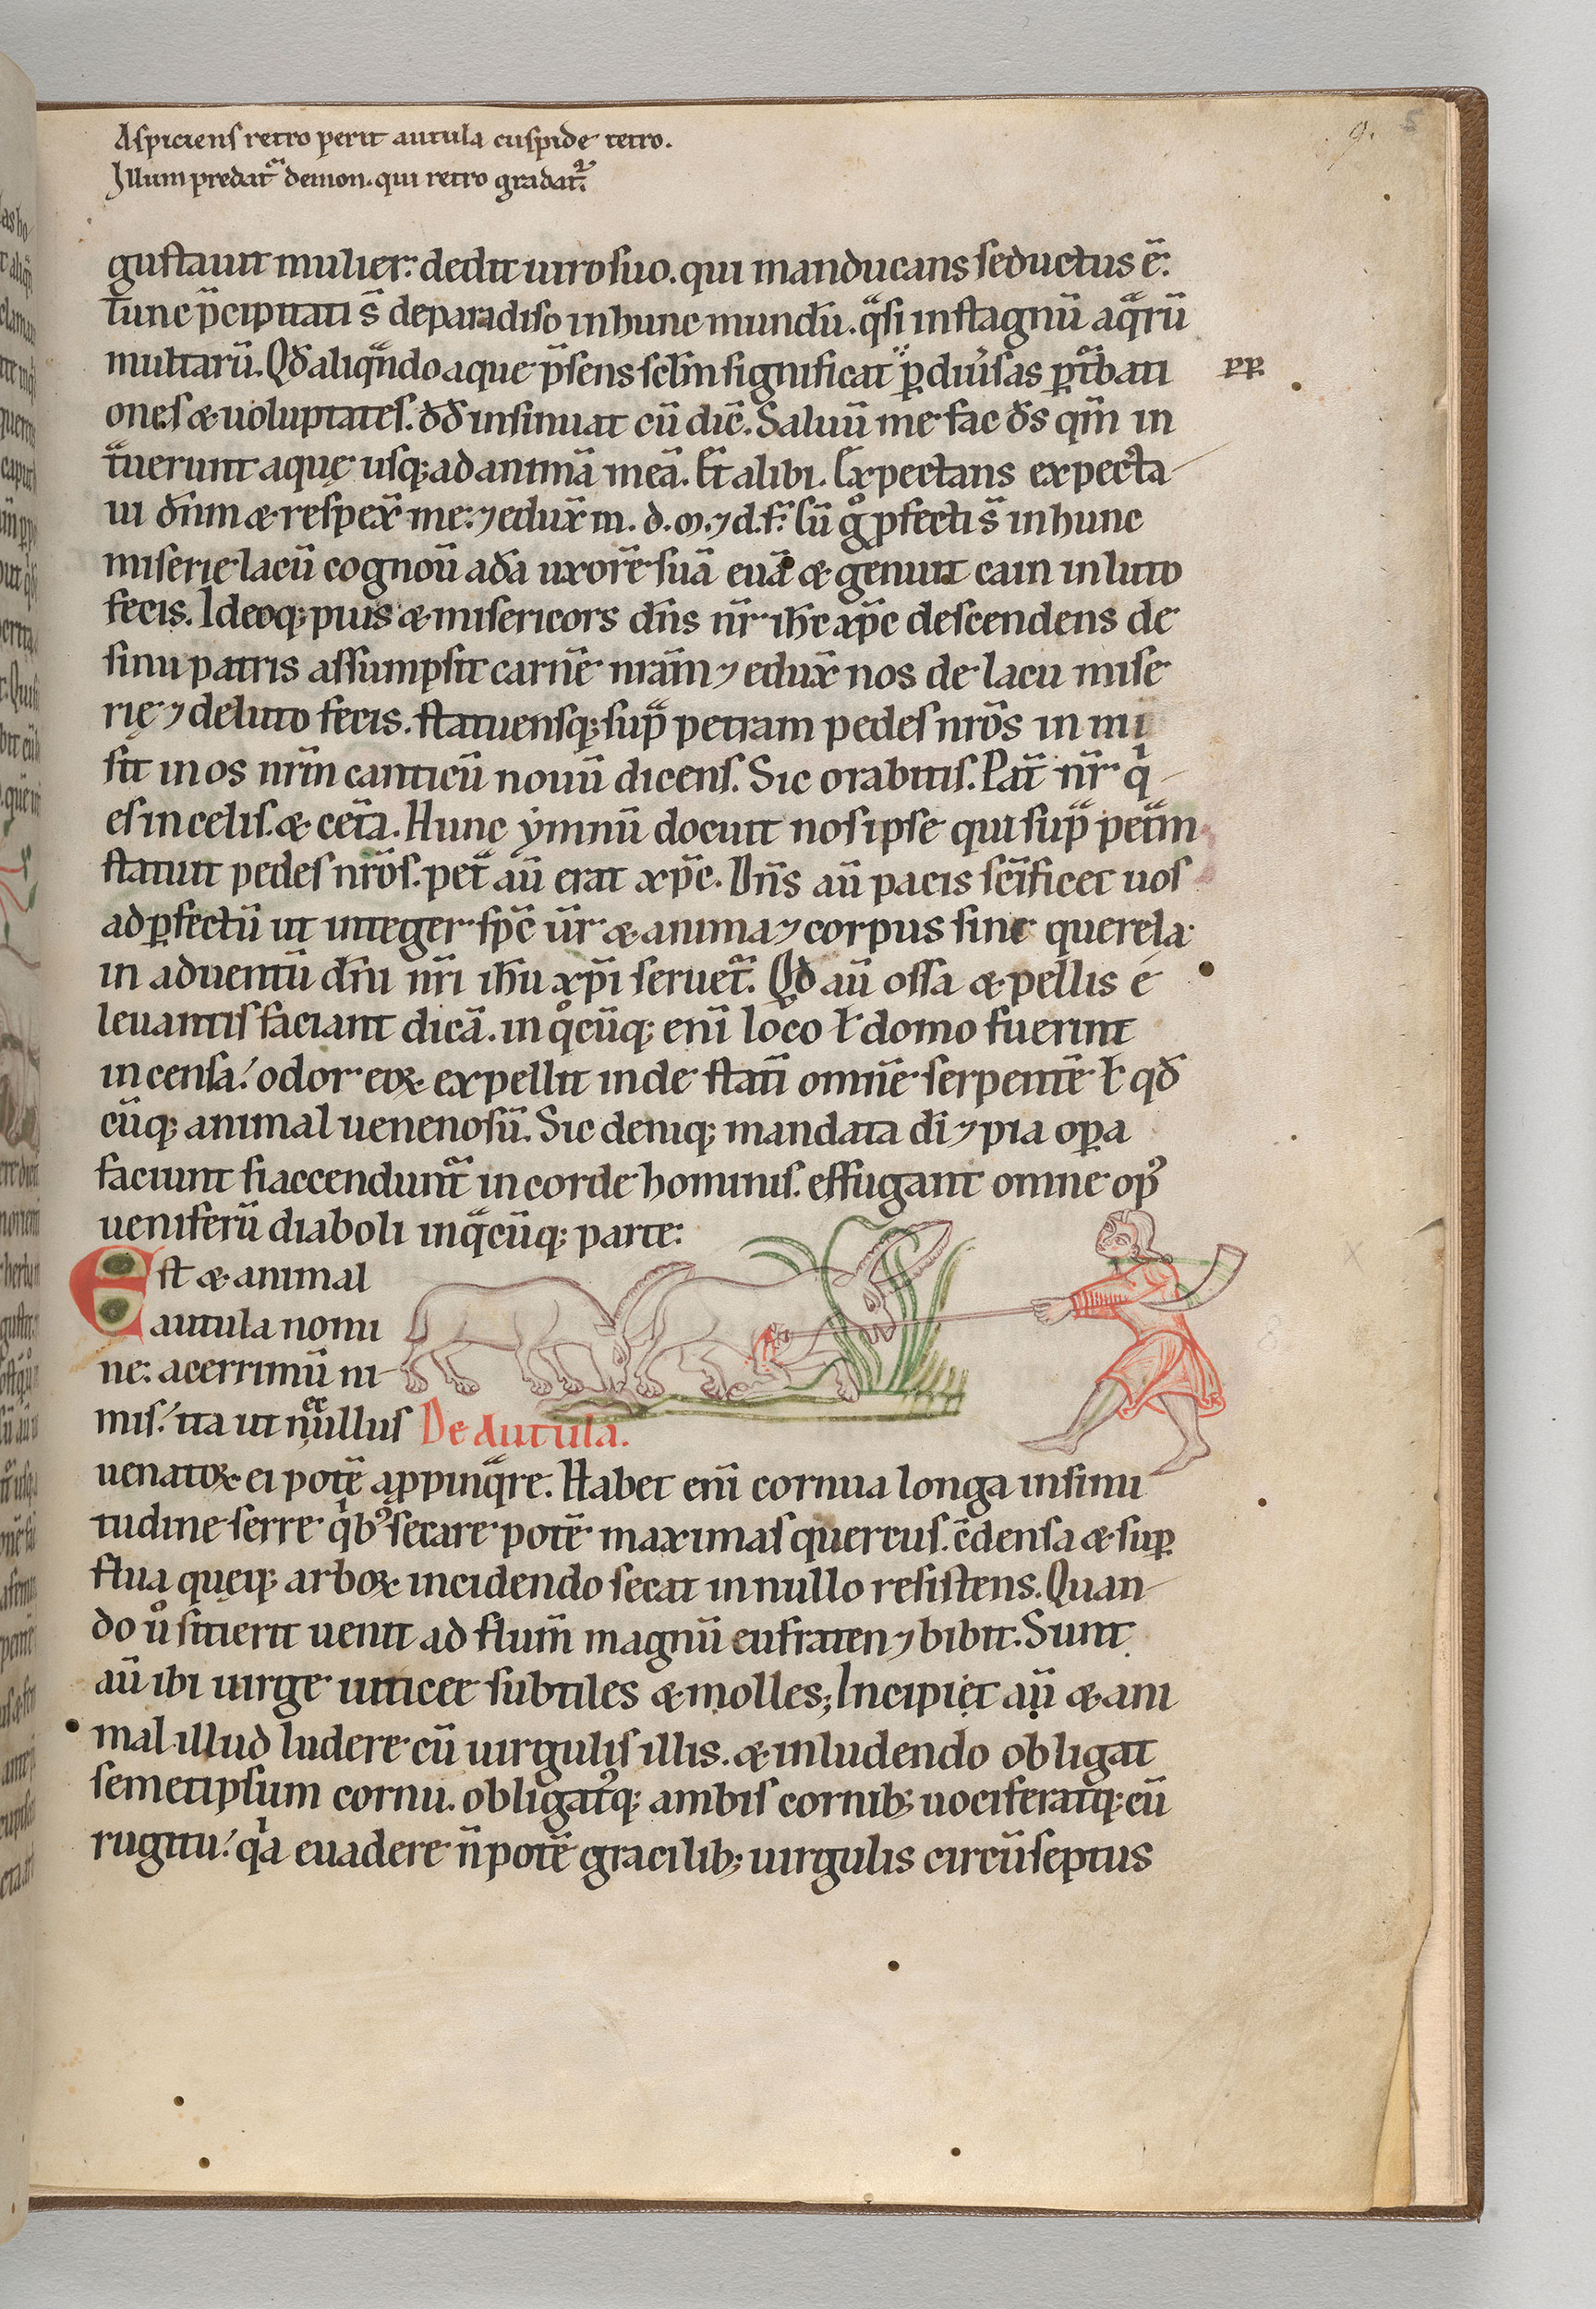 Aspiciens retro perit autula cuspide tetro.
Illum predat᷑ demon. qui retro gradat᷑.
9. 5
gustauit mulier: dedit uiro suo. qui manducans seductus ē:
tunc p̄cipitati s̄ de paradiso in hunc mundū. qᷓsi in stagnū aqᷓrū
multarū. Qđ aliqᷓndo aque p̄sens sclm̄ significat ꝑ diu̾sas ꝑtᷓbati
ꝑꝑ.
ones & uoluptates. đđ insinuat cū dic̄. Saluū me fac đs qm̄ in
tᷓuerunt aquę usq; ad animā meā. Et alibi. Expectans expecta
ui dn̄m & respex̄ me: ⁊ edux̄ m. d. m. ⁊ d. f. Cū gͦ ꝓfecti s̄ in hunc
miserie lacū cognoū ađa uxorē suā euā & genuit cain in luto
fecis. Ideoq; pius & misericors dn̄s nr̄ ih̄c xp̄c descendens de
sinu patris assumpsit carnē nrā̄m ⁊ edux̄ nos de lacu mise
rię ⁊ de luto fecis. statuensq; supᷓ petram pedes nrōs in mi
sit in os nrm̄ canticū nouū dicens. Sic orabitis. Pat̄ nr̄ qͥ
es in celis. & cet̄a. Hunc ẏmnū docuit nos ipse qui supᷓ petᷓm
statuit pedes nrōs. petᷓ aū erat xp̄c. Dn̄s aū pacis sc̄ificet uos
ad ꝑfectū ut integer sp̄c ūr & anima ⁊ corpus sine querela
in aduentū dn̄i nr̄i ih̄u xp̄i seruet᷑. Qđ aū ossa & pellis e
leuantis faciant dicā. in qͦcūq; eni̅ loco ł domo fuerint
incensa: odor eoꝝ expellit inde statī omnē serpentē ł qđ
cūq; animal uenenosū. Sic deniq; mandata dī ⁊ pia oꝑa
faciunt si accendunt᷑ in corde hominis. effugant omne opꝰ
ueniferū diaboli in qᷓcūq; parte:
Est & animal
autula nomi
ne: acerrimū ni
mis: ita ut nec ullus
De Autula.
uenatoꝝ ei potē aꝓpinqᷓre. Habet eni̅ cornua longa in simi
tudine serre qͥbꝰ secare potē maximas quercus. c̄densa & suꝑ
flua queq; arboꝝ incidendo secat in nullo resistens. Quan
do uͦ sitierit uenit ad flum̄ magnū eufraten ⁊ bibit. Sunt
aū ibi uirge uiticee subtiles & molles; Incipiet aū & ani
mal illud ludere cū uirgulis illis. & in ludendo obligat
semetipsum cornu. obligatꝰq; ambis cornib; uociferatq; cū
rugitu: qͥa euadere n̄ potē gracilib; uirgulis circūseptus